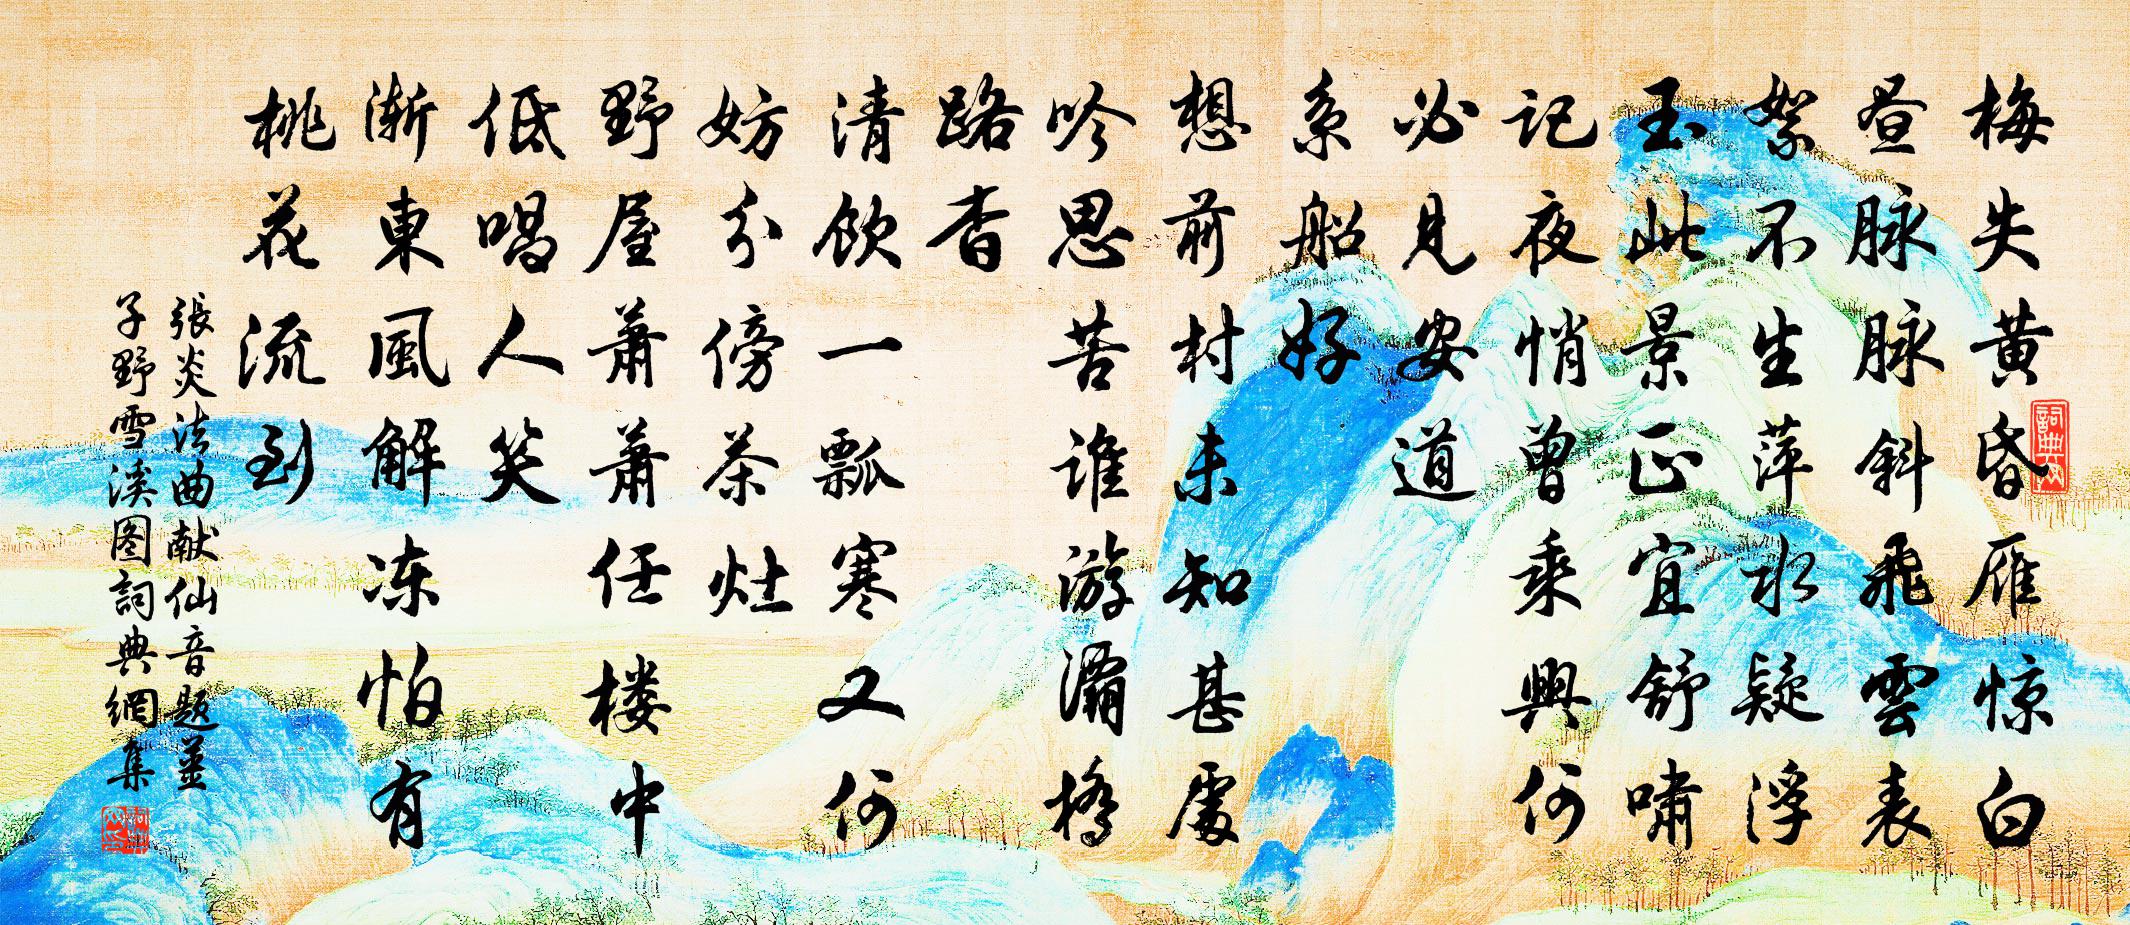 梅失黄昏雁惊白
昼脉脉斜飛雲表
絮不生萍水疑浮
玉此景正宜舒啸
记夜悄曾乘興何
必见安道
系船好
想前村未知甚處
吟思苦谁游灞桥
路杳
清飲一瓢寒又何
妨分傍茶灶
野屋萧萧任楼中
低唱人笑
渐東風解冻怕有
桃花流到
張炎法曲献仙音题姜
子野雪溪图詞典網集
詞典网